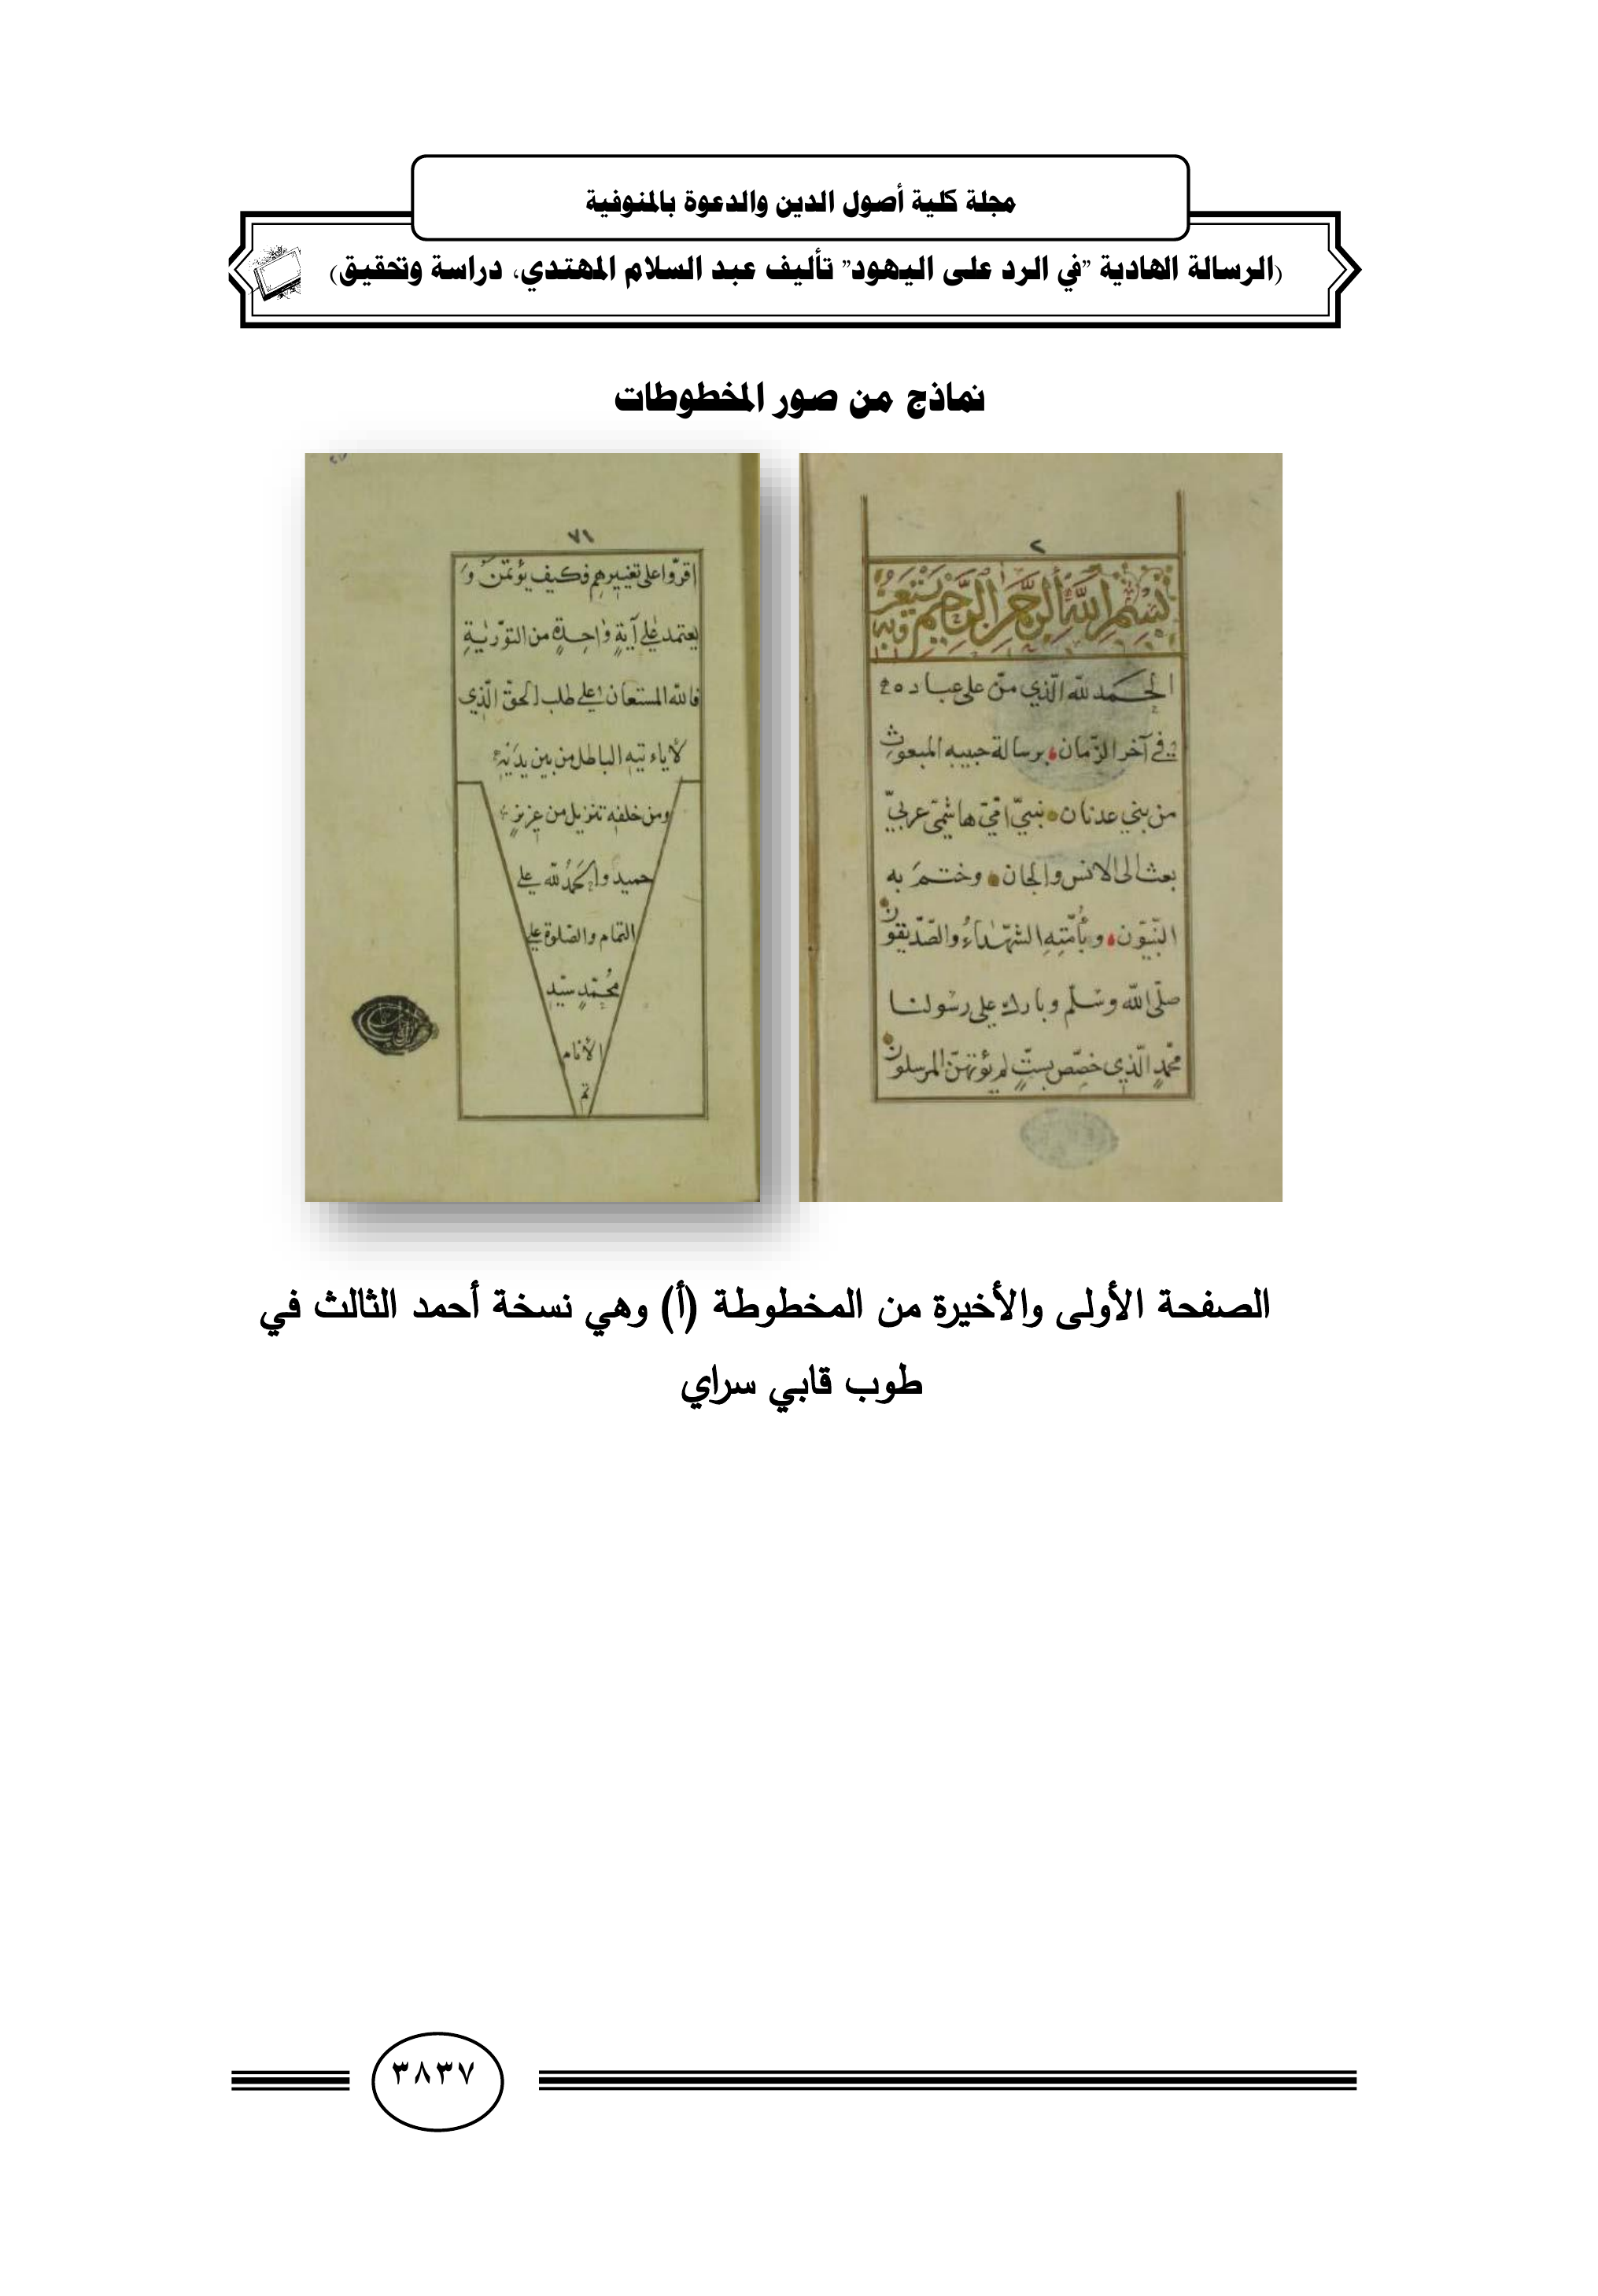 مجلة كلية أصول الدين والدعوة بالمنوفية
(الرسالة الهادية "في الرد على اليهود" تأليف عبد السلام المهتدي، دراسة وتحقيق)
نماذج من صور المخطوطات
٢
بسم الله الرحمن الرحيم
الحمد لله الّذي منّ على عباده
في آخر الزّمان برسالة حبيبه المبعوث
من بني عدنان نبيّ امّيّ هاشميّ عربيّ
بعث الى الانس والجان وختم به
النّبيّون وبأمّته الشّهداء والصّدّيقون
صلّى الله وسلّم وبارك على رسولنا
محمّدٍ الّذي خصّص بستٍّ لم يؤتهنّ المرسلون
٧١
اقرّوا على تغييرهم فكيف يؤتمن و
يعتمد على آيةٍ واحدةٍ من التّوريٰة
فالله المستعان على طلب الحقّ الّذي
لاياءتيه الباطل من بين يديه
ومن خلفه تنزيل من عزيز
حميد والحمد لله على
التمام والصّلوة على
محمّدٍ سيّد
الأنام
تم
الصفحة الأولى والأخيرة من المخطوطة (أ) وهي نسخة أحمد الثالث في
طوب قابي سراي
٣٨٣٧